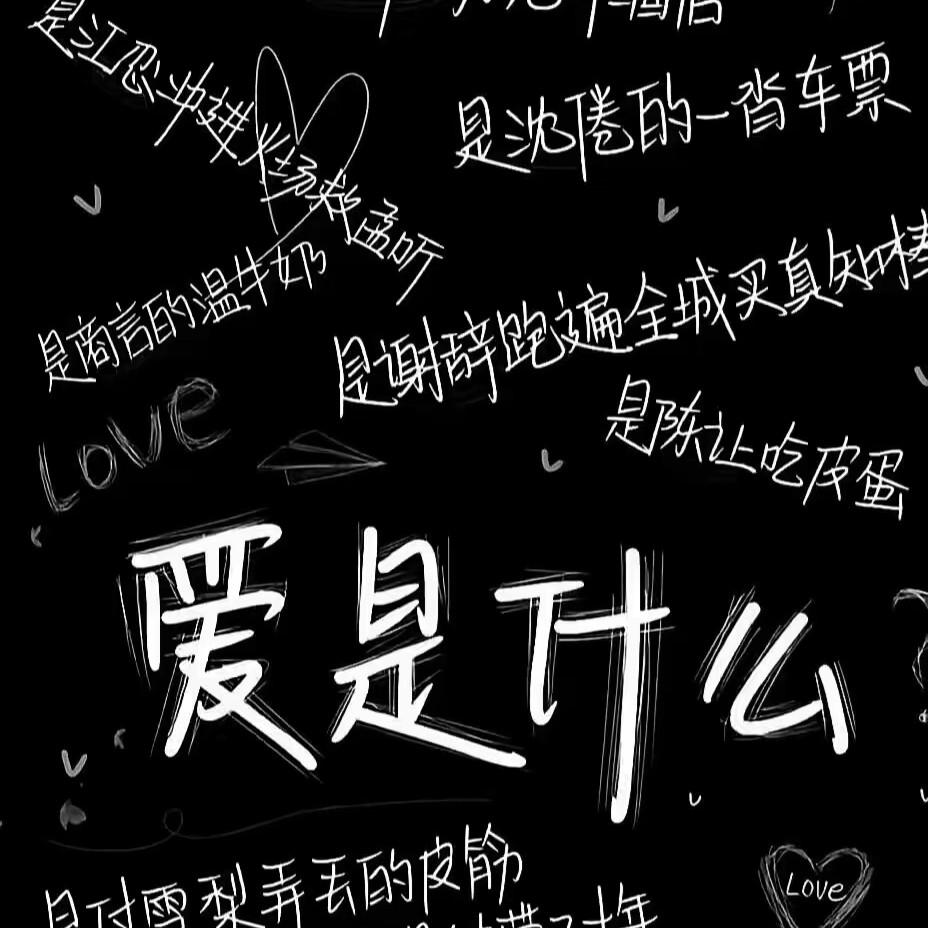 是江忍冲进火场救孟听
是沈倦的一沓车票
是商言的温牛奶
是谢辞跑遍全城买真知棒
是陈让吃皮蛋
Love
爱是什么
是付雪梨弄丢的皮筋
Love